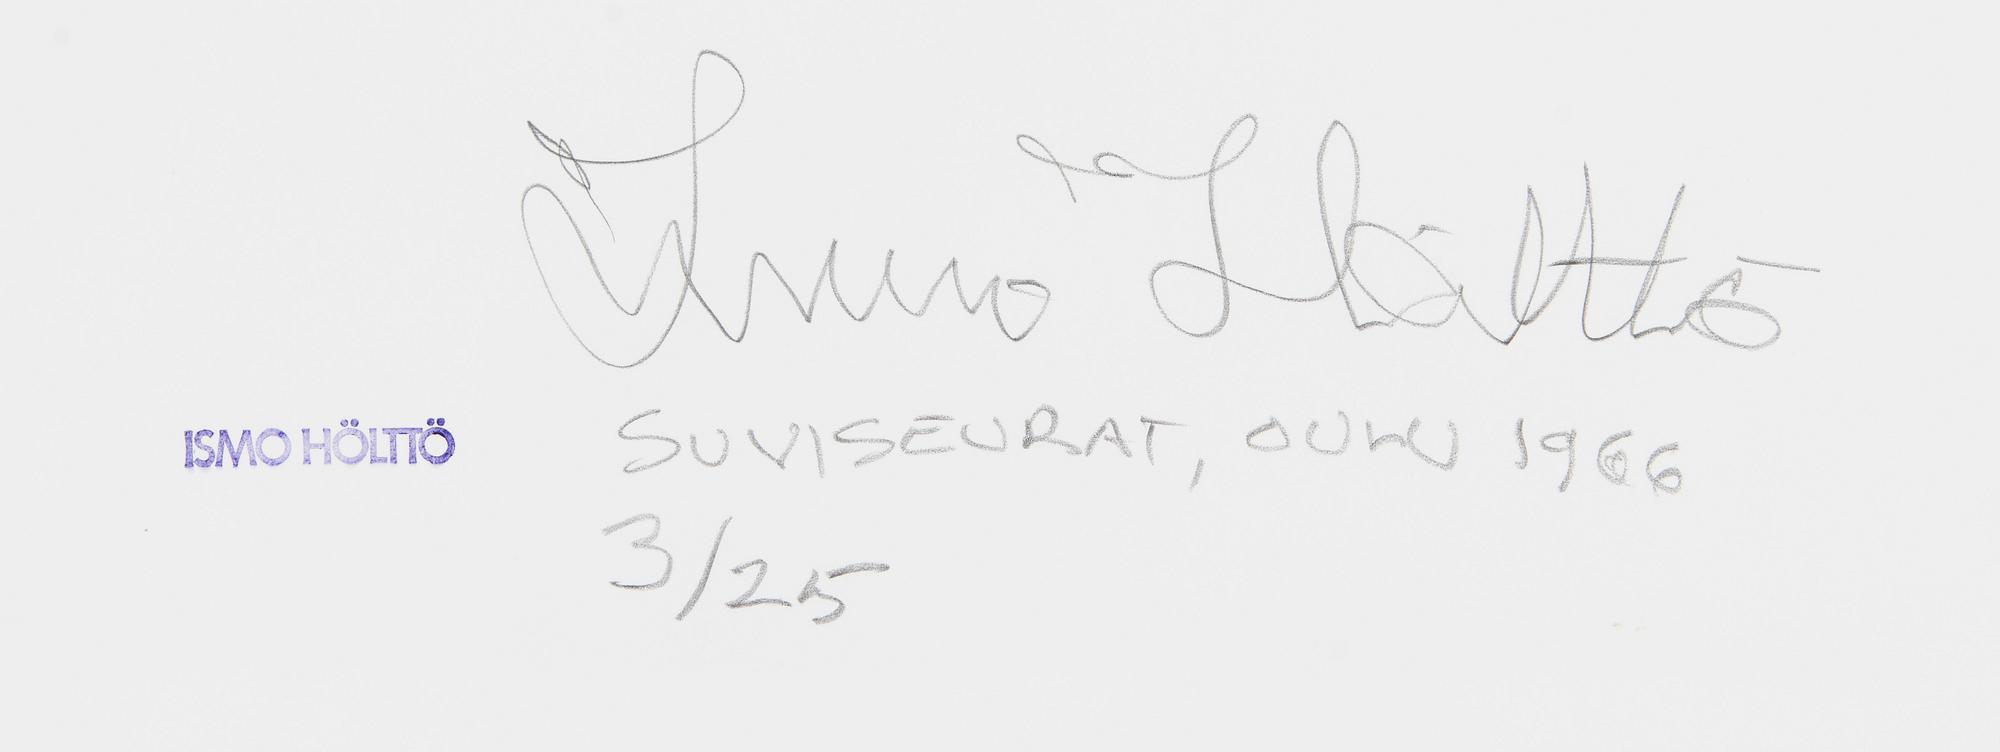 Ismo Hölttö
ISMO HÖLTTÖ
SUVISEURAT, OULU 1966
3/25